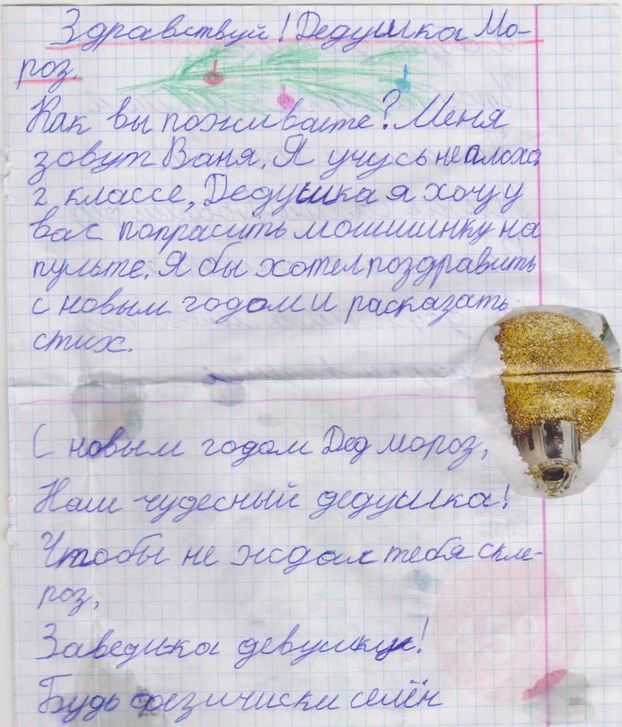 Здравствуй! Дедушка Мо-
роз.
Как вы поживаете? Меня
зовут Ваня. Я учусь неплоха
2 классе, Дедушка я хочу
вас попрасить мошиинку на
пульте. Я бы хотел поздравить
с новым годом и расказать
стих.
С новым годом Дед мороз,
Наш чудесный дедушка!
Чтобы не ждал тебя скле-
роз,
Заведи-ка девушку!
Будь физичиски селён